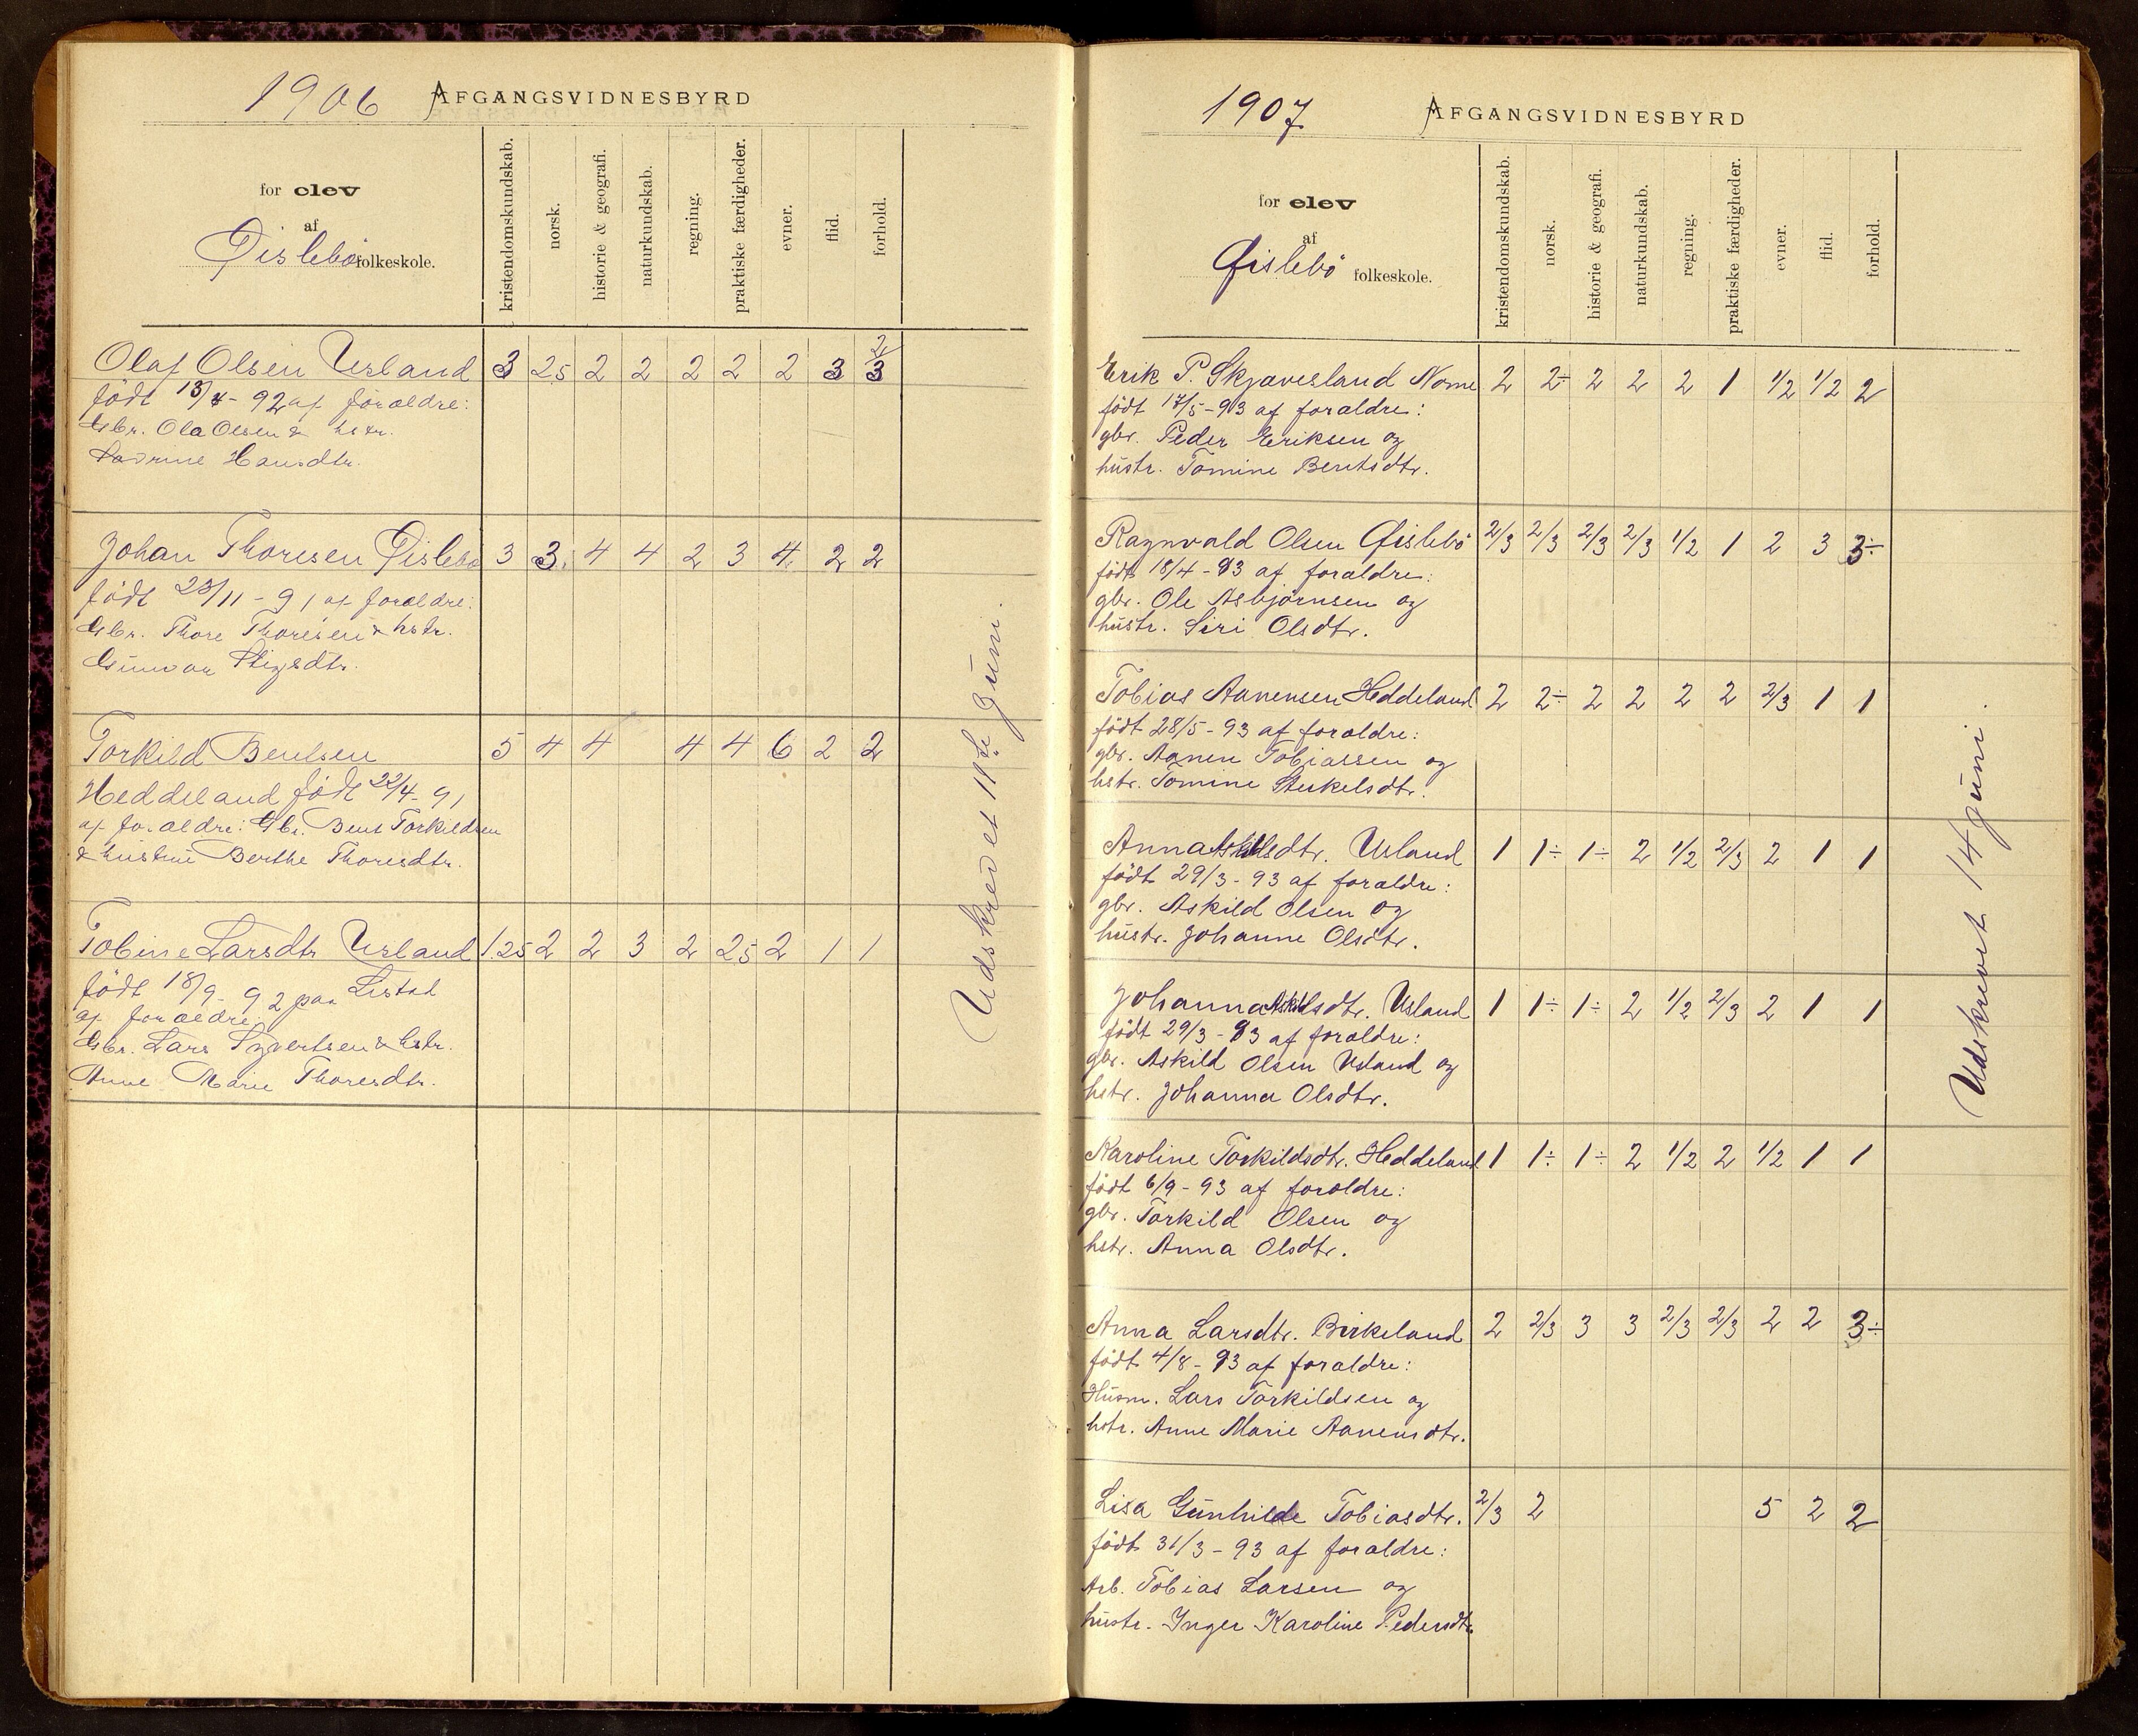 1906 AFGANGSVIDNESBYRD
for elev
af
Øislebø folkeskole.
kristendomskundskab. norsk. historie & geografi. naturkundskab. regning. praktiske færdigheder. evner. flid. forhold.
Olaf Olsen Usland 3 2,5 2 2 2 2 2 3 2/3
født 13/4 - 92 af forældre:
Gbr. Ola Olsen & hstr.
Hansdtr.
Johan Thoresen Øislebø 3 3. 4 4 2 3 4. 2 2
født 23/11 - 91 af forældre:
Gbr. Thore Thoresen & hstr.
Gunvor Stigsdtr.
Torkild Bentsen 5 4 4 4 4 6 2 2
Heddeland født 22/4 - 91
af forældre: Gbr. Bent Torkildsen
& hustru Berthe Thoresdtr.
Tobine Larsdtr Usland 1.25 2 2 3 2 2,5 2 1 1
født 18/9 - 92 paa Listad
af forældre:
Gbr. Lars Syvertsen & hstr.
Anne Marie Thoresdtr.
Udskrevet 11te Juni.
1907 AFGANGSVIDNESBYRD
for elev
af
Øislebö folkeskole.
kristendomskundskab. norsk. historie & geografi. naturkundskab. regning. praktiske færdigheder. evner. flid. forhold.
Erik P. Skjævesland Nome 2 2÷ 2 2 2 1 1/2 1/2 2
født 17/5 - 93 af forældre:
gbr. Peder Eriksen og
hustr. Tomine Bentsdtr.
Ragnvald Olsen Øislebö 2/3 2/3 2/3 2/3 1/2 1 2 3 3÷
født 18/4 - 93 af forældre:
gbr. Ole Asbjörnsen og
hustr. Siri Olsdtr.
Tobias Aanensen Heddeland 2 2÷ 2 2 2 2 2/3 1 1
født 28/5 - 93 af forældre:
gbr. Aanen Tobiassen og
hstr. Tomine Sterkelsdtr.
Anna Askildsdtr. Usland 1 1÷ 1÷ 2 1/2 2/3 2 1 1
født 29/3 - 93 af forældre:
gbr. Askild Olsen og
hustr. Johanne Olsdtr.
Johanna Askildsdtr. Usland 1 1÷ 1÷ 2 1/2 2/3 2 1 1
født 29/3 - 93 af forældre:
gbr. Askild Olsen Usland og
hstr. Johanna Olsdtr.
Karoline Torkildsdtr. Heddeland 1 1÷ 1÷ 2 1/2 2 1/2 1 1
født 6/9 - 93 af forældre:
gbr. Torkild Olsen og
hstr. Anna Olsdtr.
Anna Larsdtr. Birkeland 2 2/3 3 3 2/3 2/3 2 2 3÷
født 4/8 - 93 af forældre:
Husm. Lars Torkildsen og
hstr. Anne Marie Aanensdtr.
Lisa Gunhilde Tobiasdtr. 2/3 2 5 2 2
født 31/3 - 93 af forældre:
Arb. Tobias Larsen og
hustr. Inger Karoline Pedersdtr.
Udskrevet 14 juni.